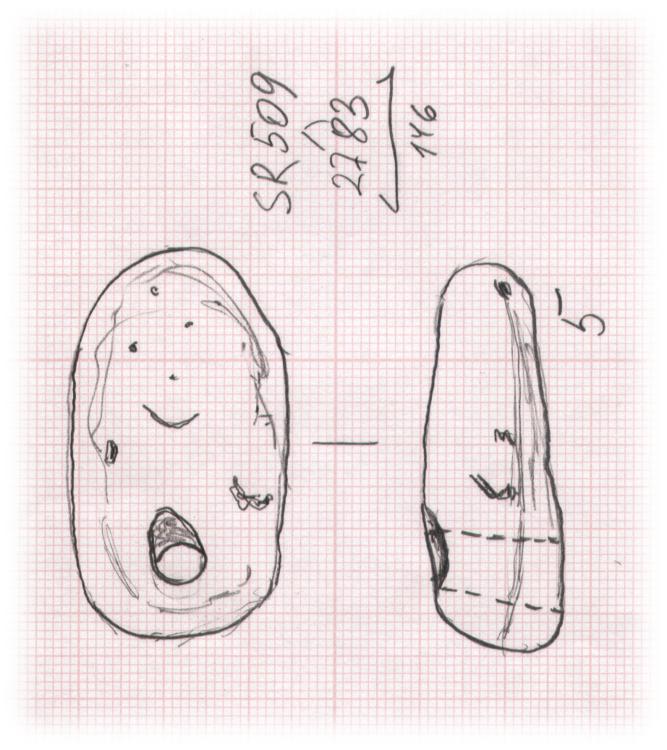 SR 509
2783
146
5